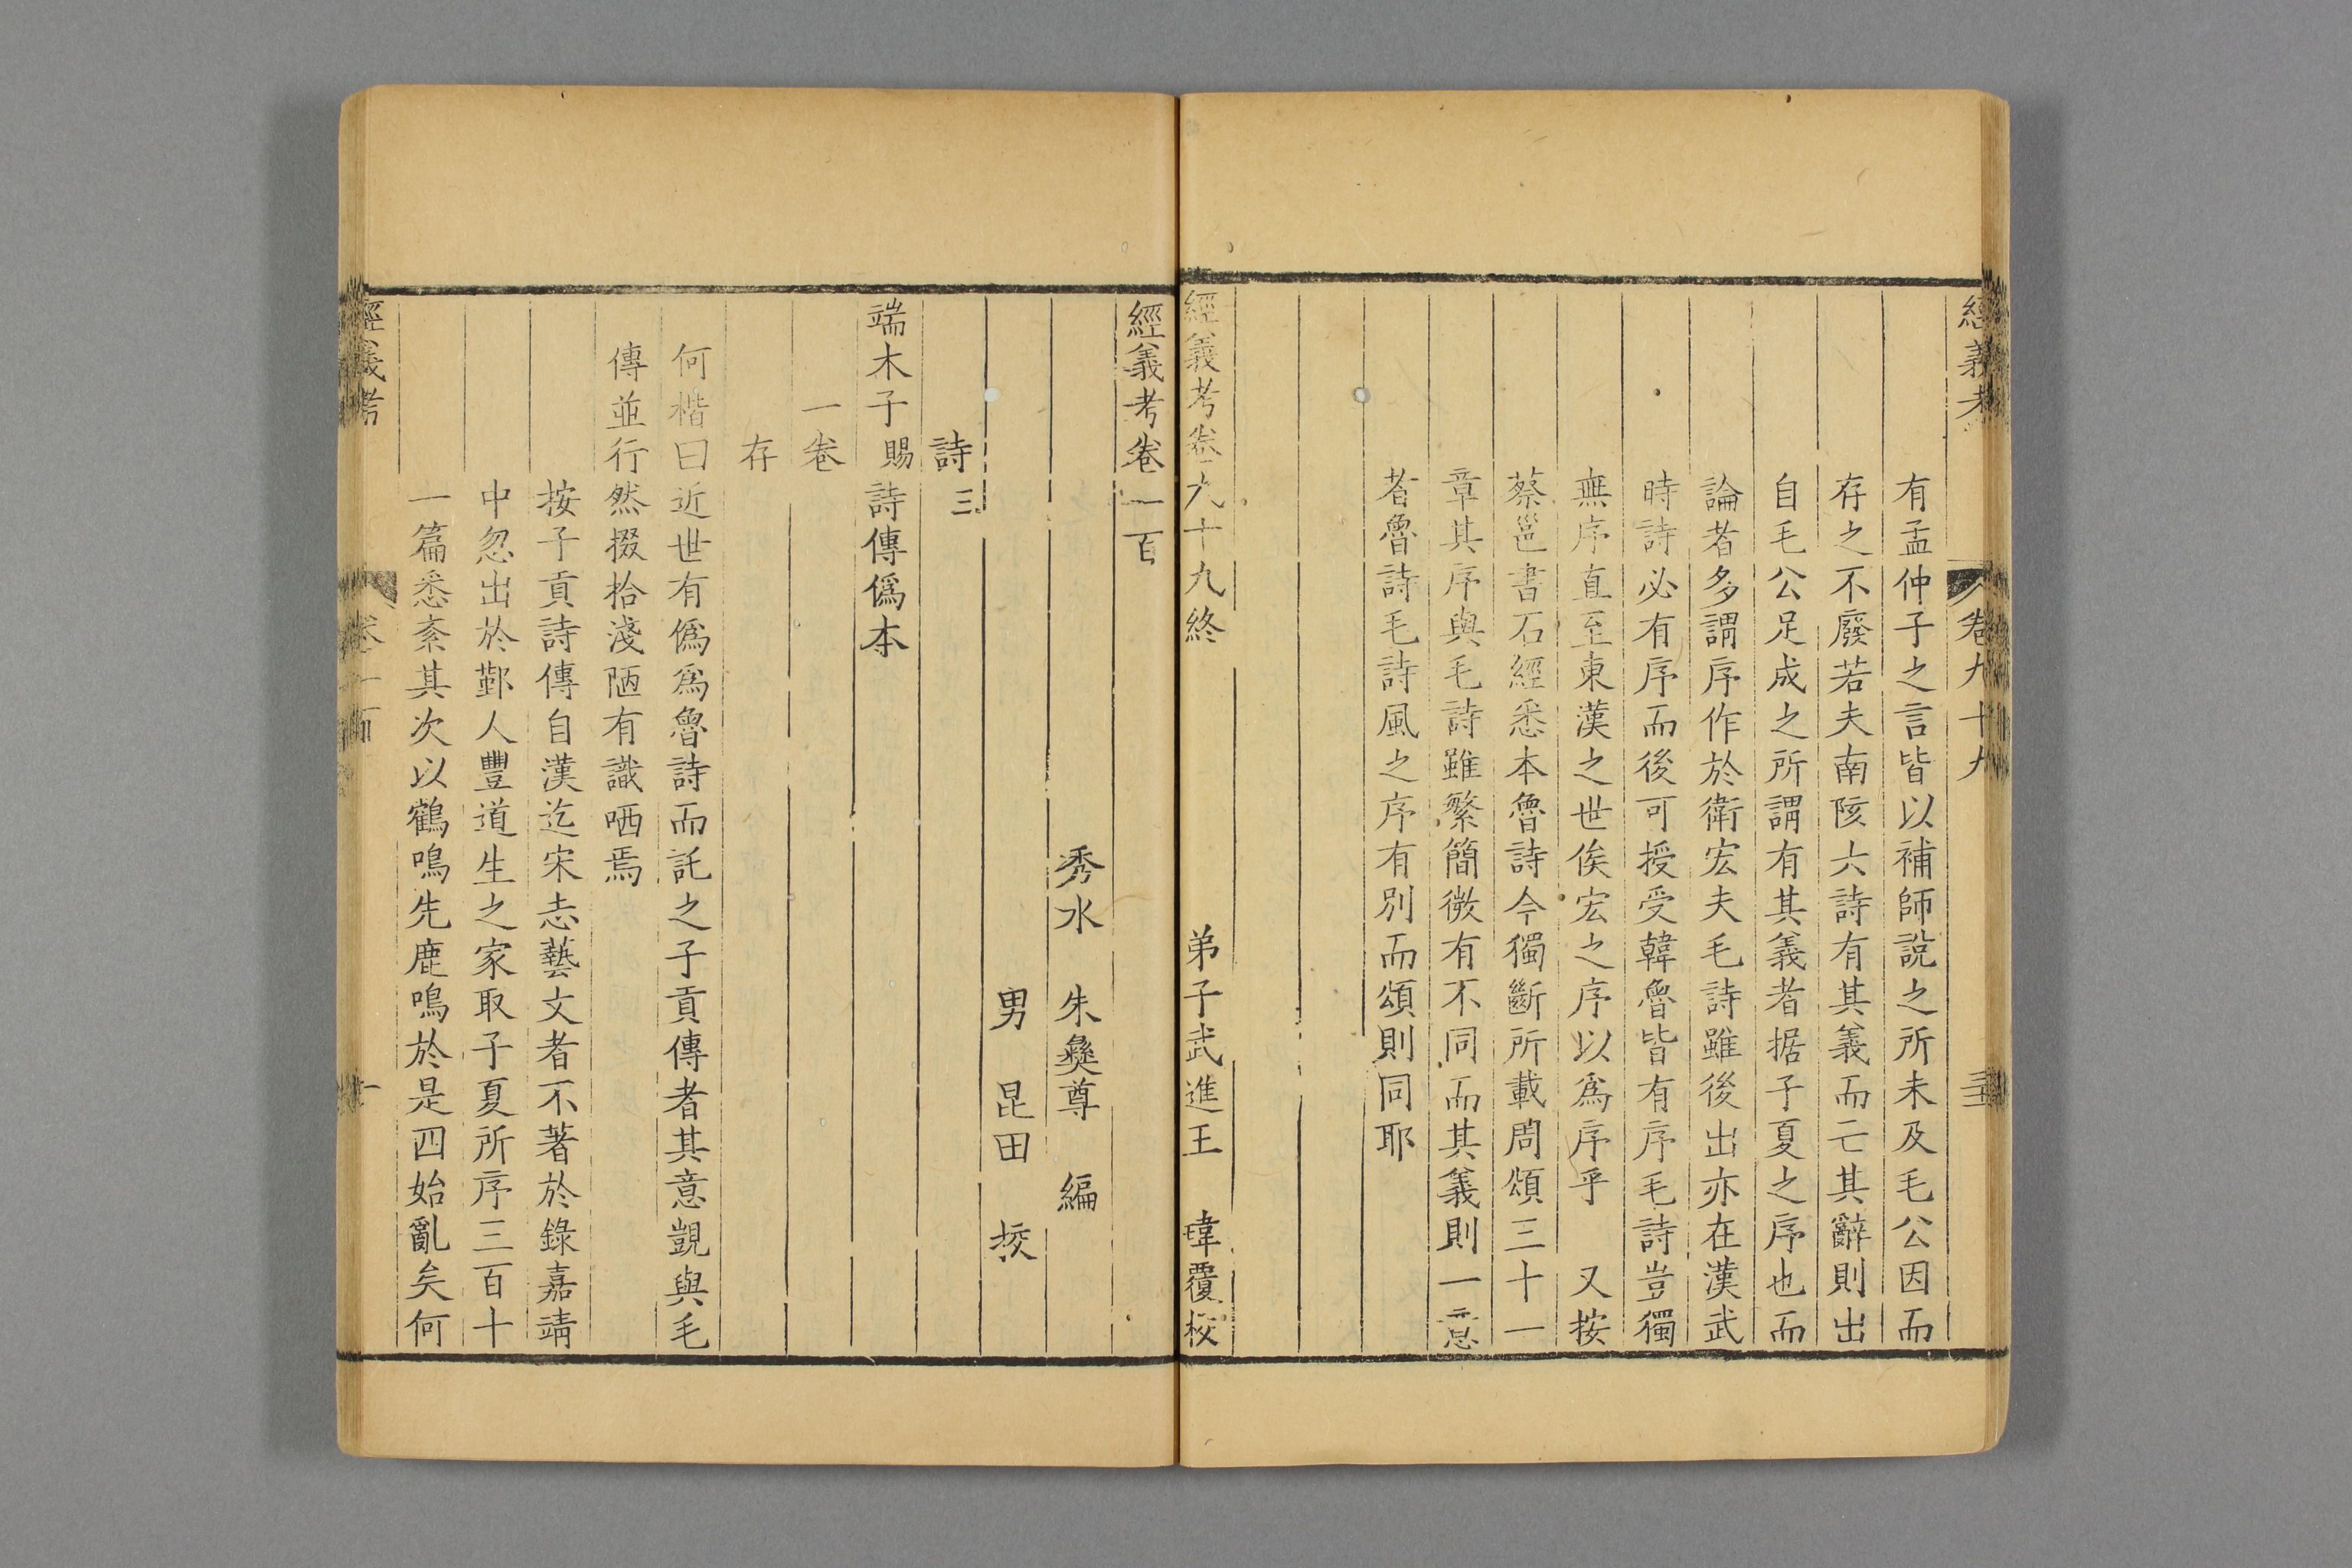 經義考
卷九十九
有孟仲子之言皆以補師說之所未及毛公因而
存之不廢若夫南陔六詩有其義而亡其辭則出
自毛公足成之所謂有其義者据子夏之序也而
論者多謂序作於衛宏夫毛詩雖後出亦在漢武
時詩必有序而後可授受韓魯皆有序毛詩豈獨
無序直至東漢之世俟宏之序以爲序乎　又按
蔡邕書石經悉本魯詩今獨斷所載周頌三十一
章其序與毛詩雖繁簡微有不同而其義則一意
者魯詩毛詩風之序有別而頌則同耶
經義考卷九十九終　弟子武進王　暐覆校
經義考卷一百
秀水　朱彝尊　編
男　昆田　挍
詩三
端木子賜詩傳僞本
一卷
存
何楷曰近世有僞爲魯詩而託之子貢傳者其意覬與毛
傳並行然掇拾淺陋有識哂焉
按子貢詩傳自漢迄宋志藝文者不著於錄嘉靖
中忽出於鄞人豐道生之家取子夏所序三百十
一篇悉紊其次以鶴鳴先鹿鳴於是四始亂矣何
經義考
卷一百
一